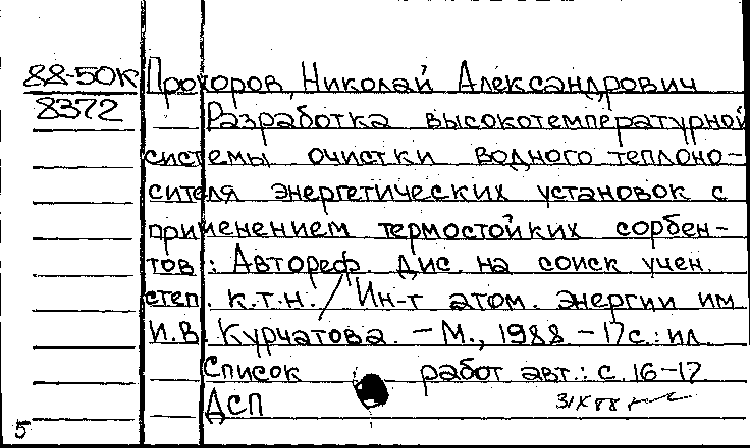 88-50к Прохоров, Николай Александрович
8372 Разработка высокотемпературной
системы очистки водного теплоно-
сителя энергетических установок с
применением термостойких сорбен-
тов: Автореф. дис. на соиск. учен.
степ. к.т.н. / Ин-т атом. энергии им.
И.В. Курчатова. - М., 1988. - 17 с.: ил.
Список работ авт.: с. 16-17
ДСП
5